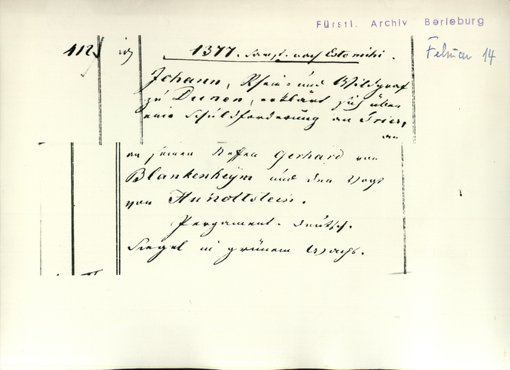 Fürstl. Archiv Berleburg
Februar 14
412
1377. Sonnt. nach Estomihi.
Johann, Rhein- und Wildgraf
zu Dunen, erklärt sich über
eine Schuldforderung an Trier,
an
an seinen Neffen Gerhard von
Blankenheym und den Vogt
von Hunoltstein.
Pergament. Deutsch.
Siegel in grünem Wachs.